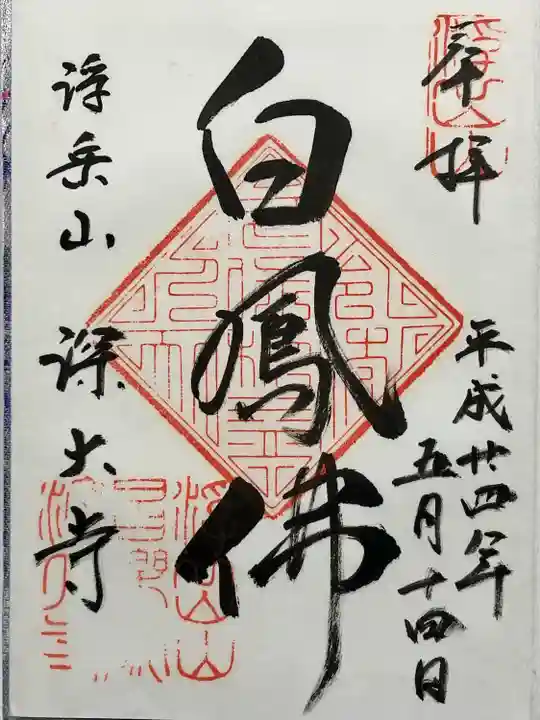 奉拝
平成廿四年
五月十四日
白鳳佛
浮岳山 深大寺